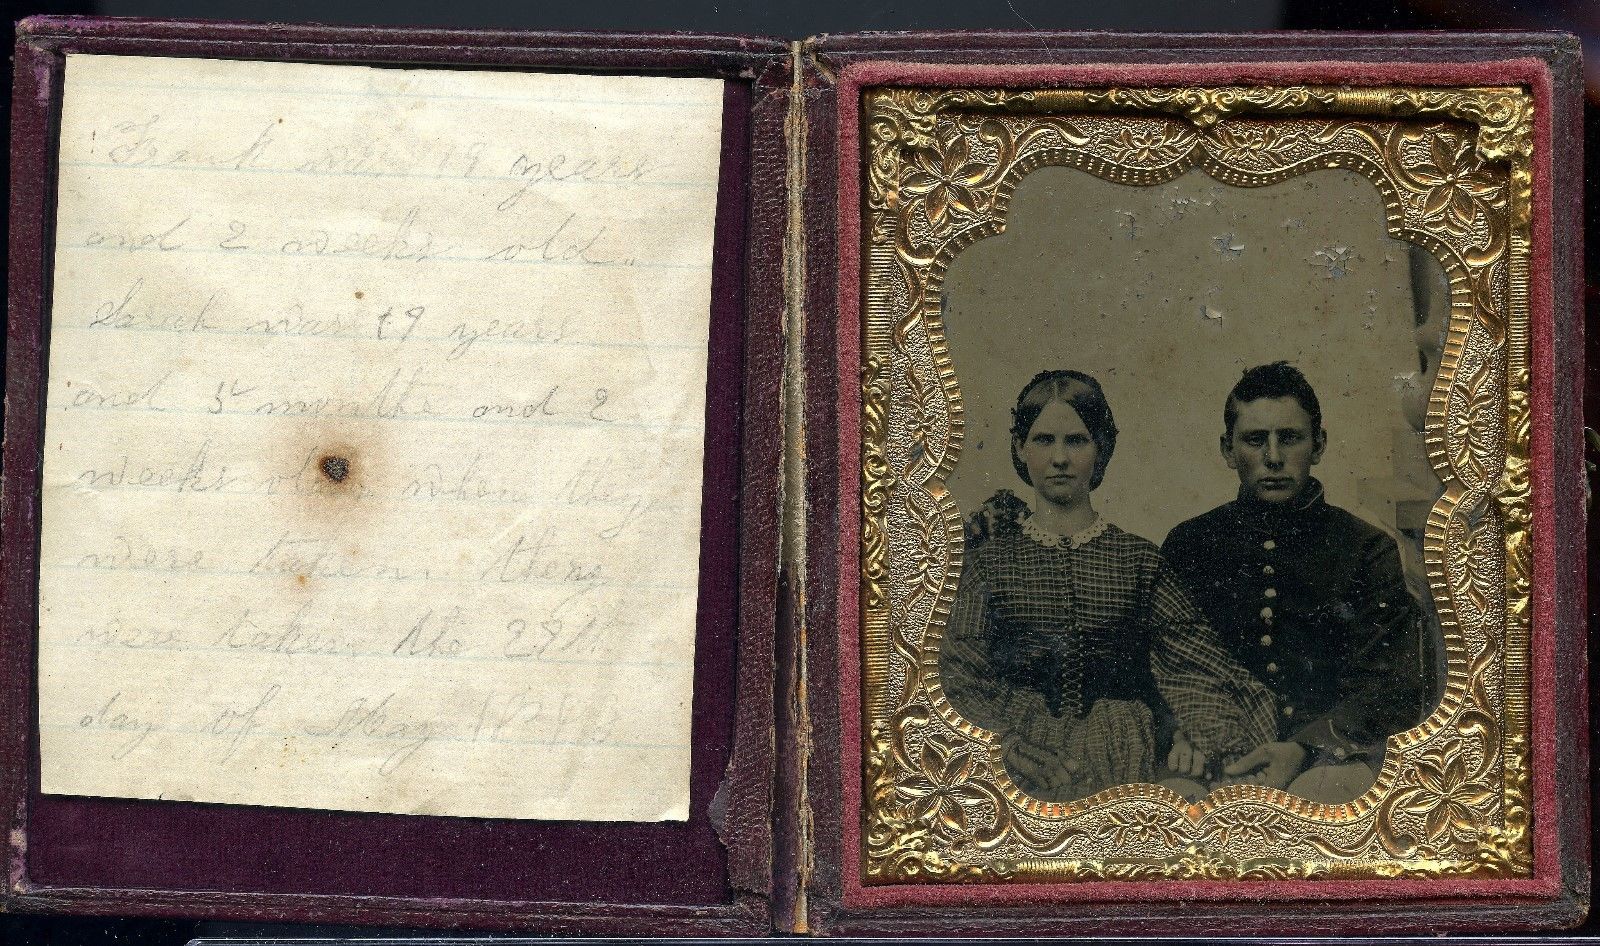 Frank was 19 years
and 2 weeks old.
Sarah was 19 years
and 5 months and 2
weeks old when they
were taken. they
were taken the 29th
day of May